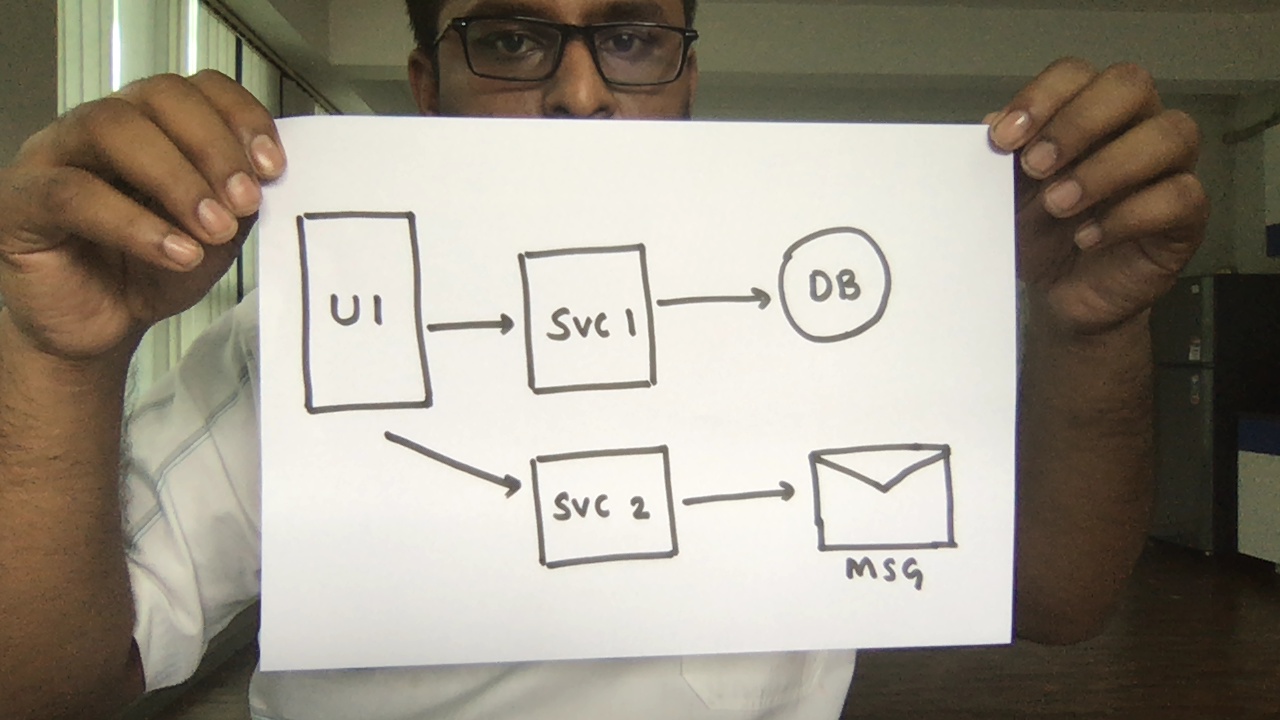 UI
SVC 1
DB
SVC 2
MSG